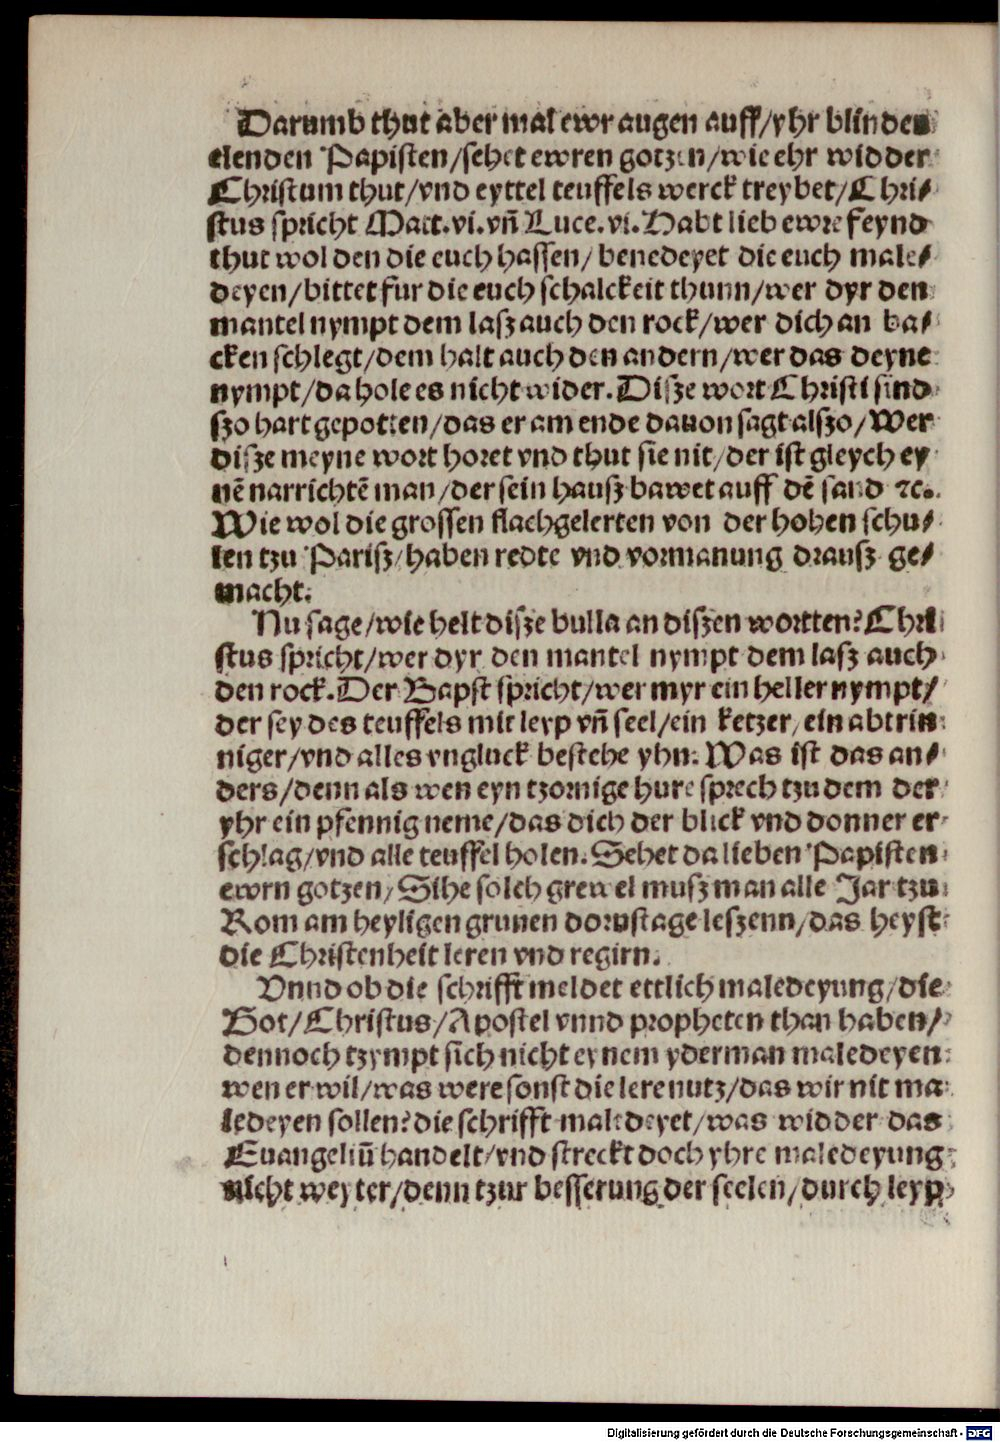 Darumb thut aber mal ewr augen auff/yhr blinden
elenden Papisten/sehet ewren gotzen/wie ehr widder
Christum thut/vnd eyttel teuffels werck treybet/Chri⸗
stus spricht Matt.vi.vñ Luce.vi.Habt lieb ewre feynd
thut wol den die euch hassen/ benedeyet die euch male⸗
deyen/bittet fur die euch schalckeit thunn/wer dyr den
mantel nympt dem lasz auch den rock/wer dich an ba⸗
cken schlegt/dem halt auch den andern/wer das deyne
nympt/da hole es nicht wider. Disze wort Christi sind
szo hart gepotten/das er am ende dauon sagt alszo/Wer
disze meyne wort horet vnd thut sie nit/der ist gleych ey
nẽ narrichtẽ man/der sein hausz bawet auff dẽ sand ⁊c.
Wie wol die grossen flachgelerten von der hohen schu⸗
len tzu Parisz/haben redte vnd vormanung drausz ge⸗
macht.
Nu sage/wie helt disze bulla an diszen wortten? Chri
stus spricht/wer dyr den mantel nympt dem lasz auch
den rock. Der Bapst spricht/wer myr ein heller nympt/
der sey des teuffels mit leyp vñ seel/ein ketzer/ein abtrin
niger/vnd alles vngluck bestehe yhn. Was ist das an⸗
ders/denn als wen eyn tzornige hure sprech tzu dem der
yhr ein pfennig neme/das dich der blick vnd donner er
schlag/vnd alle teuffel holen. Sehet da lieben Papisten
ewrn gotzen/Sihe solch grewel musz man alle Jar tzu
Rom am heyligen grunen dornstage leszenn/das heyst
die Christenheit leren vnd regirn.
Vnnd ob die schrifft meldet ettlich maledeyung/die
Got/Christus/Apostel vnnd propheten than haben/
dennoch tzympt sich nicht eynem yderman maledeyen
wen er wil/was were sonst die lere nutz/das wir nit ma
ledeyen sollen? die schrifft maledeyet/was widder das
Euangeliũ handelt/vnd streckt doch yhre maledeyung
nicht weyter/denn tzur besserung der seelen/durch leyp
Digitalisierung gefördert durch die Deutsche Forschungsgemeinschaft - DFG